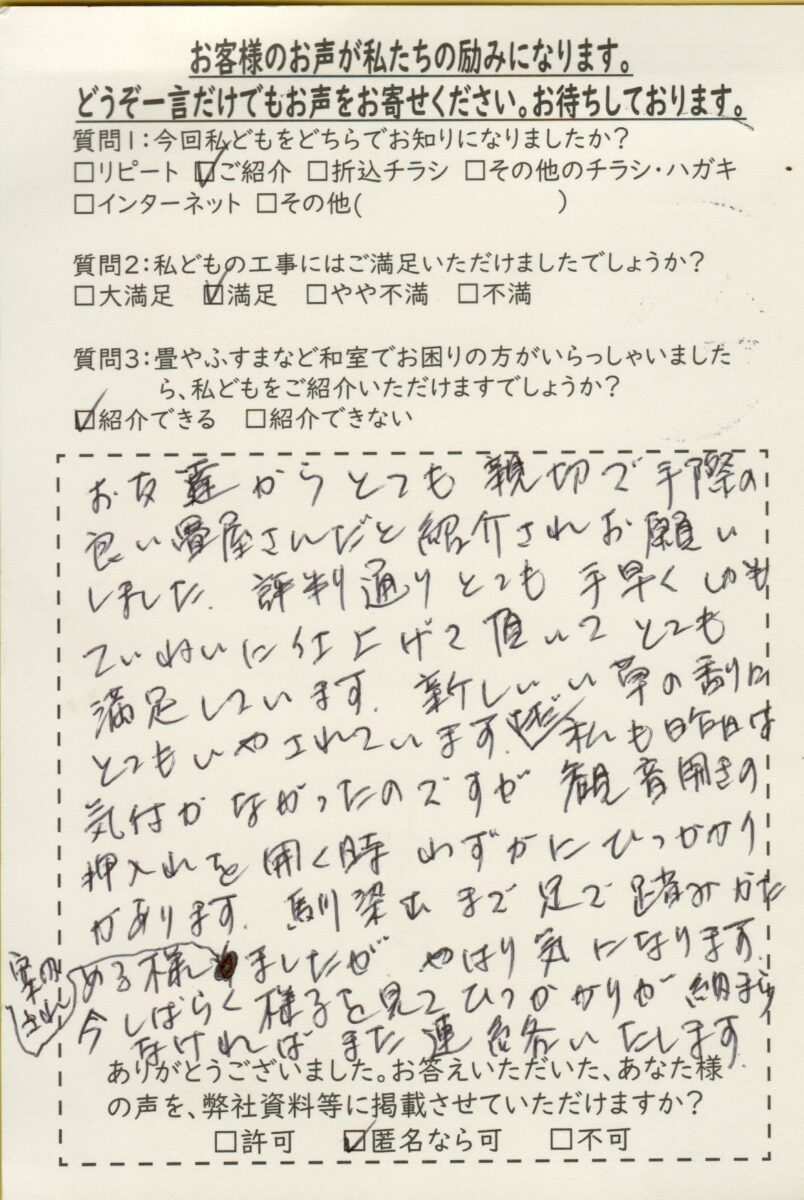 お客様のお声が私たちの励みになります。
どうぞ一言だけでもお声をお寄せください。お待ちしております。
質問1:今回私どもをどちらでお知りになりましたか?
□リピート ☑ご紹介 □折込チラシ □その他のチラシ・ハガキ
□インターネット □その他( )
質問2:私どもの工事にはご満足いただけましたでしょうか?
□大満足 ☑満足 □やや不満 □不満
質問3:畳やふすまなど和室でお困りの方がいらっしゃいました
ら、私どもをご紹介いただけますでしょうか?
☑紹介できる □紹介できない
お友達からとても親切で手際の
良い畳屋さんだと紹介されお願い
しました. 評判通りとても手早くしかも
ていねいに仕上げて頂いてとても
満足しています. 新しいい草の香りに
とてもいやされています. ただ私も昨日は
気付かなかったのですが観音開きの
押入れを開く時わずかにひっかかり
があります. 馴染むまで足で踏みかた
める様 案内され ましたが やはり気になります.
今しばらく様子を見てひっかかりが納まら
なければまた連絡いたします.
ありがとうございました。お答えいただいた、あなた様
の声を、弊社資料等に掲載させていただけますか?
□許可 ☑匿名なら可 □不可